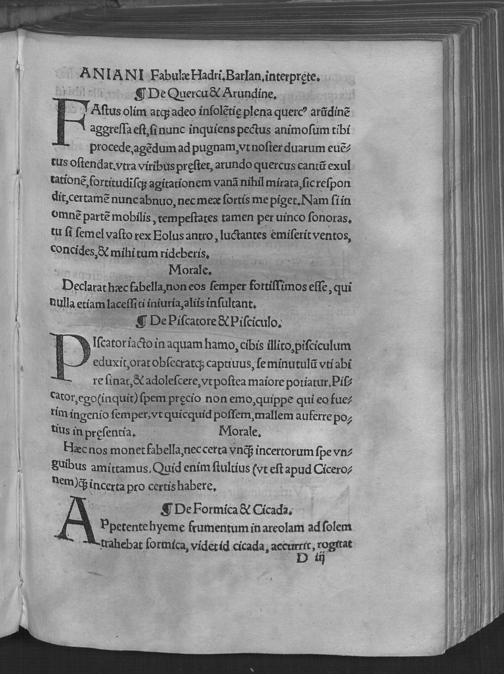 ANIANI Fabulæ Hadri. Barlan. interpręte.
¶ De Quercu & Arundine.
FAstus olim atqꝫ adeo insolētię plena querc⁹ arūdinē
aggressa est, si nunc inquiens pectus animosum tibi
procede, agēdum ad pugnam, vt noster duarum euē⸗
tus ostendat. vtra viribus pręstet, arundo quercus cantū exul
tationē, fortitudisqꝫ agitationem vanā nihil mirata, sic respon
dit, certamē nunc abnuo, nec meæ sortis me piget. Nam si in
omnē partē mobilis, tempestates tamen per uinco sonoras.
tu si semel vasto rex Eolus antro, luctantes emiserit ventos,
concides, & mihi tum rideberis.
Morale.
Declarat hæc fabella, non eos semper fortissimos esse, qui
nulla etiam lacessiti iniuria, aliis insultant.
¶ De Piscatore & Pisciculo.
PIscator iacto in aquam hamo, cibis illito, pisciculum
eduxit, orat obsecratqꝫ captiuus, se minutulū vti abi
re sinat, & adolescere, vt postea maiore potiatur. Pis⸗
cator, ego (inquit) spem pręcio non emo, quippe qui eo fue⸗
rim ingenio semper, vt quicquid possem, mallem auferre po⸗
tius in pręsentia. Morale.
Hæc nos monet fabella, nec certa vnqꝫ incertorum spe vn⸗
guibus amittamus. Quid enim stultius (vt est apud Cicero⸗
nem) qꝫ incerta pro certis habere.
¶ De Formica & Cicada.
APpetente hyeme frumentum in areolam ad solem
trahebat formica, videt id cicada, accurrit, rogitat
D iij